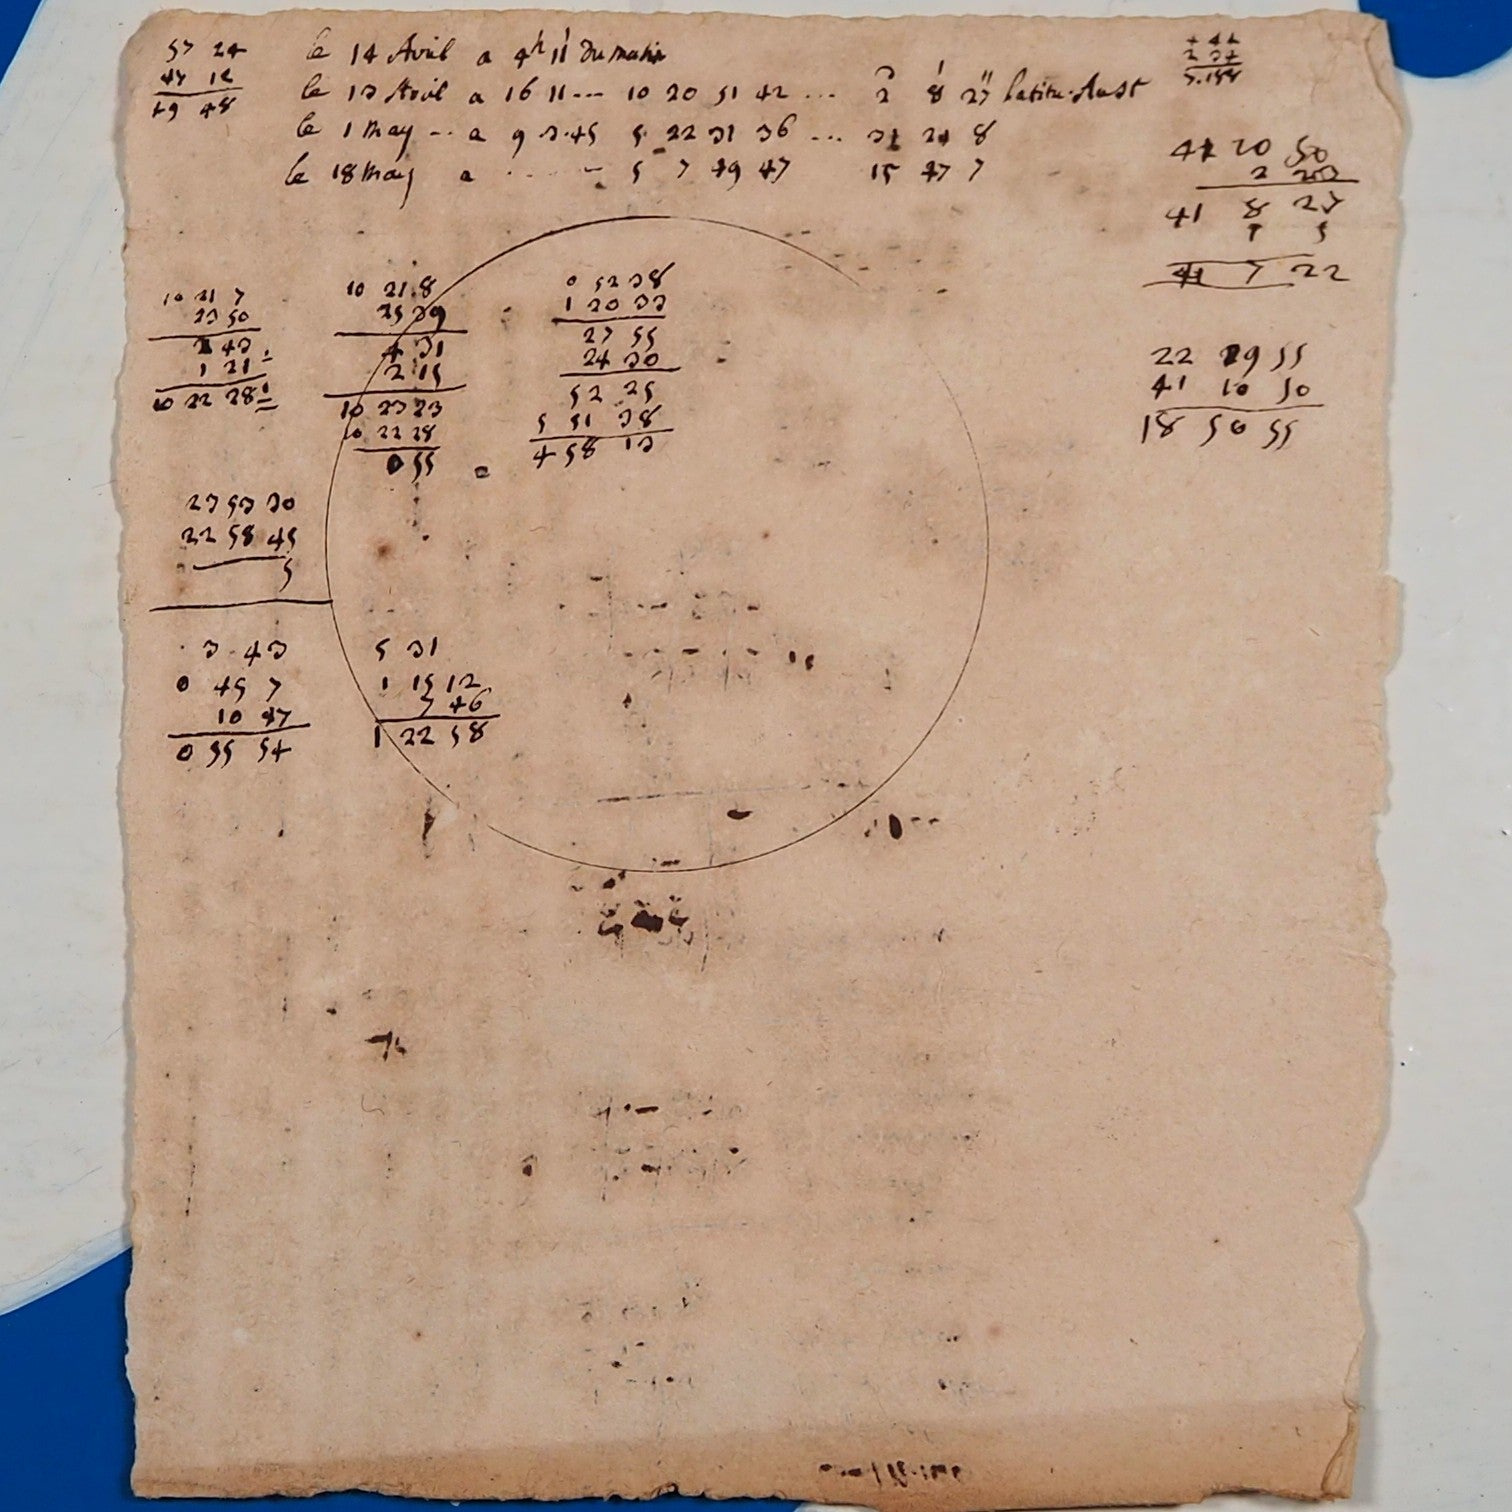 57 24
47 12
49 48
le 14 Avril a 4h 11' du matin
le 13 Avril a 16 11 ... 10 20 51 42 ... 2° 8' 27" latitu. Aust
le 1 May ... a 9 3.45 5 22 31 36 ... 31 24 8
le 18 May a ...... 5 7 49 47 15 47 7
41 20 50
41 8 27
1 5
41 7 22
10 21 7
23 50
2 43
1 21
10 22 28
10 21.8
25 39
4 31
2 15
10 23 23
10 22 28
0 55
0 52 38
1 20 33
27 55
24 30
52 25
5 51 38
4 58 13
22 29 55
41 10 50
18 50 55
23 53 30
22 58 45
5
3 43
0 45 7
10 47
0 55 54
5 31
1 15 12
7 46
1 22 58